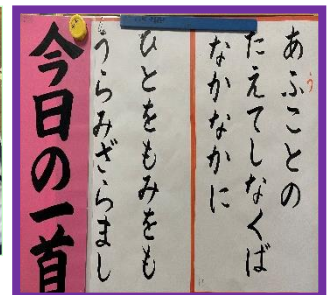 あふことの
う
たえてしなくば
なかなかに
ひとをもみをも
うらみざらまし
今日の一首